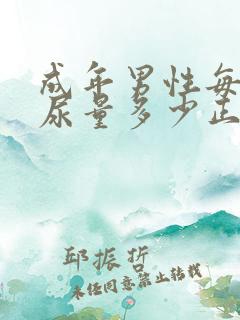 成年男性每
尿量多少正
邱振折
未经同意禁止转载